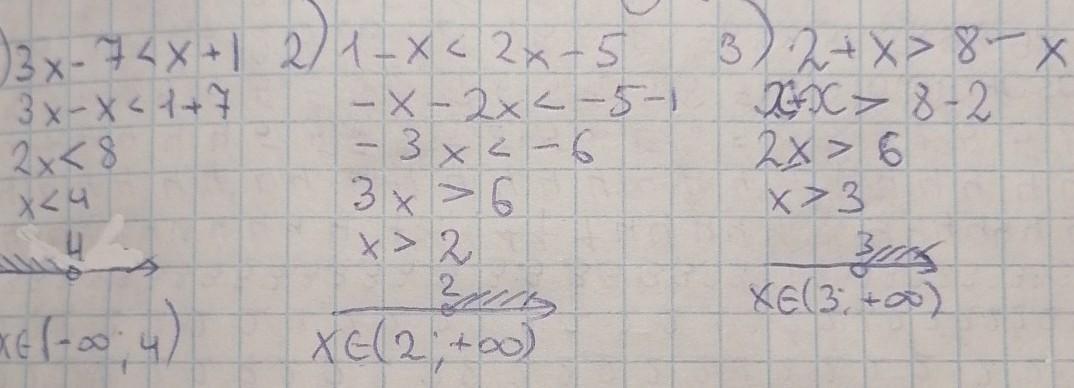 ) 3x - 7 < x + 1
3x - x < 1 + 7
2x < 8
x < 4
4
x ∈ (-∞; 4)
2) 1 - x < 2x - 5
-x - 2x < -5 - 1
-3x < -6
3x > 6
x > 2
2
x ∈ (2; +∞)
3) 2 + x > 8 - x
x + x > 8 - 2
2x > 6
x > 3
3
x ∈ (3; +∞)